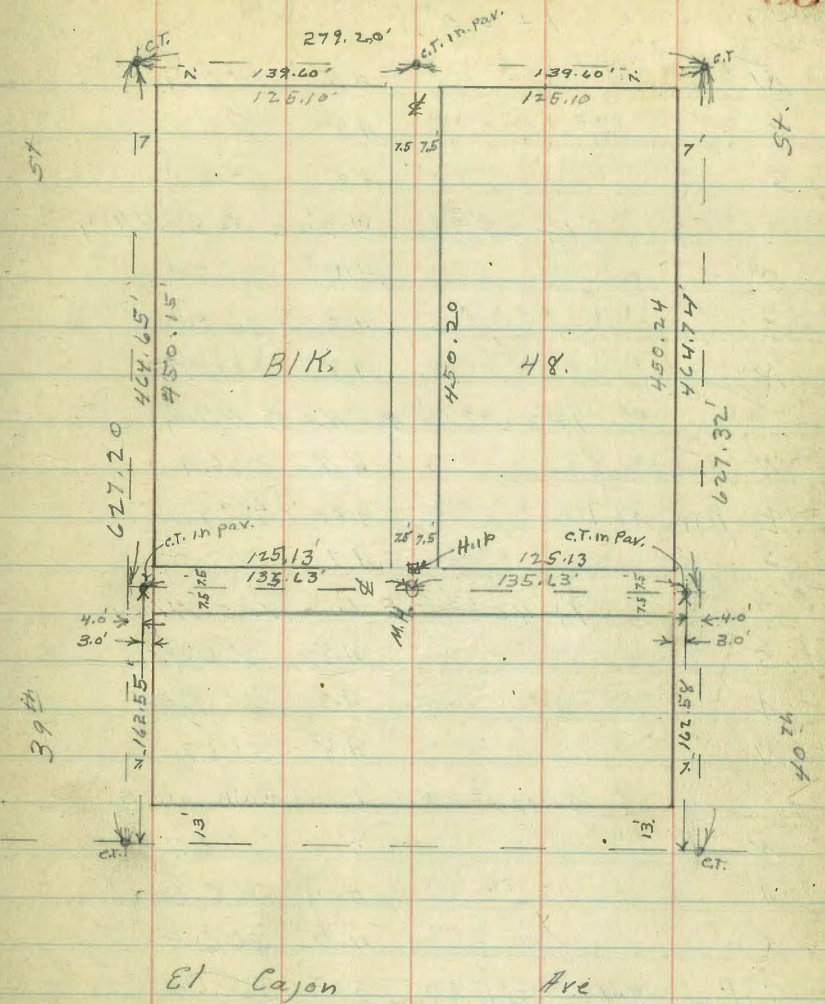 279.20'
C.T.
C.T. in pav.
C.T
7.
139.60'
139.60'
7.
125.10'
125.10
℄
St
7
7.5 7.5'
7'
St.
464.65'
450.15'
450.20
450.24
464.74'
Blk.
48.
627.20
627.32'
C.T. in pav.
7.5' 7.5'
Hub
C.T. in Pav.
125.13'
125.13
135.63'
135.63'
7.5' 7.5'
℄
7.5 7.5
M.H.
4.0'
4.0'
3.0'
3.0'
39th
7.
162.55'
7.
162.58
40th
13'
13.'
C.T.
C.T.
El Cajon Ave